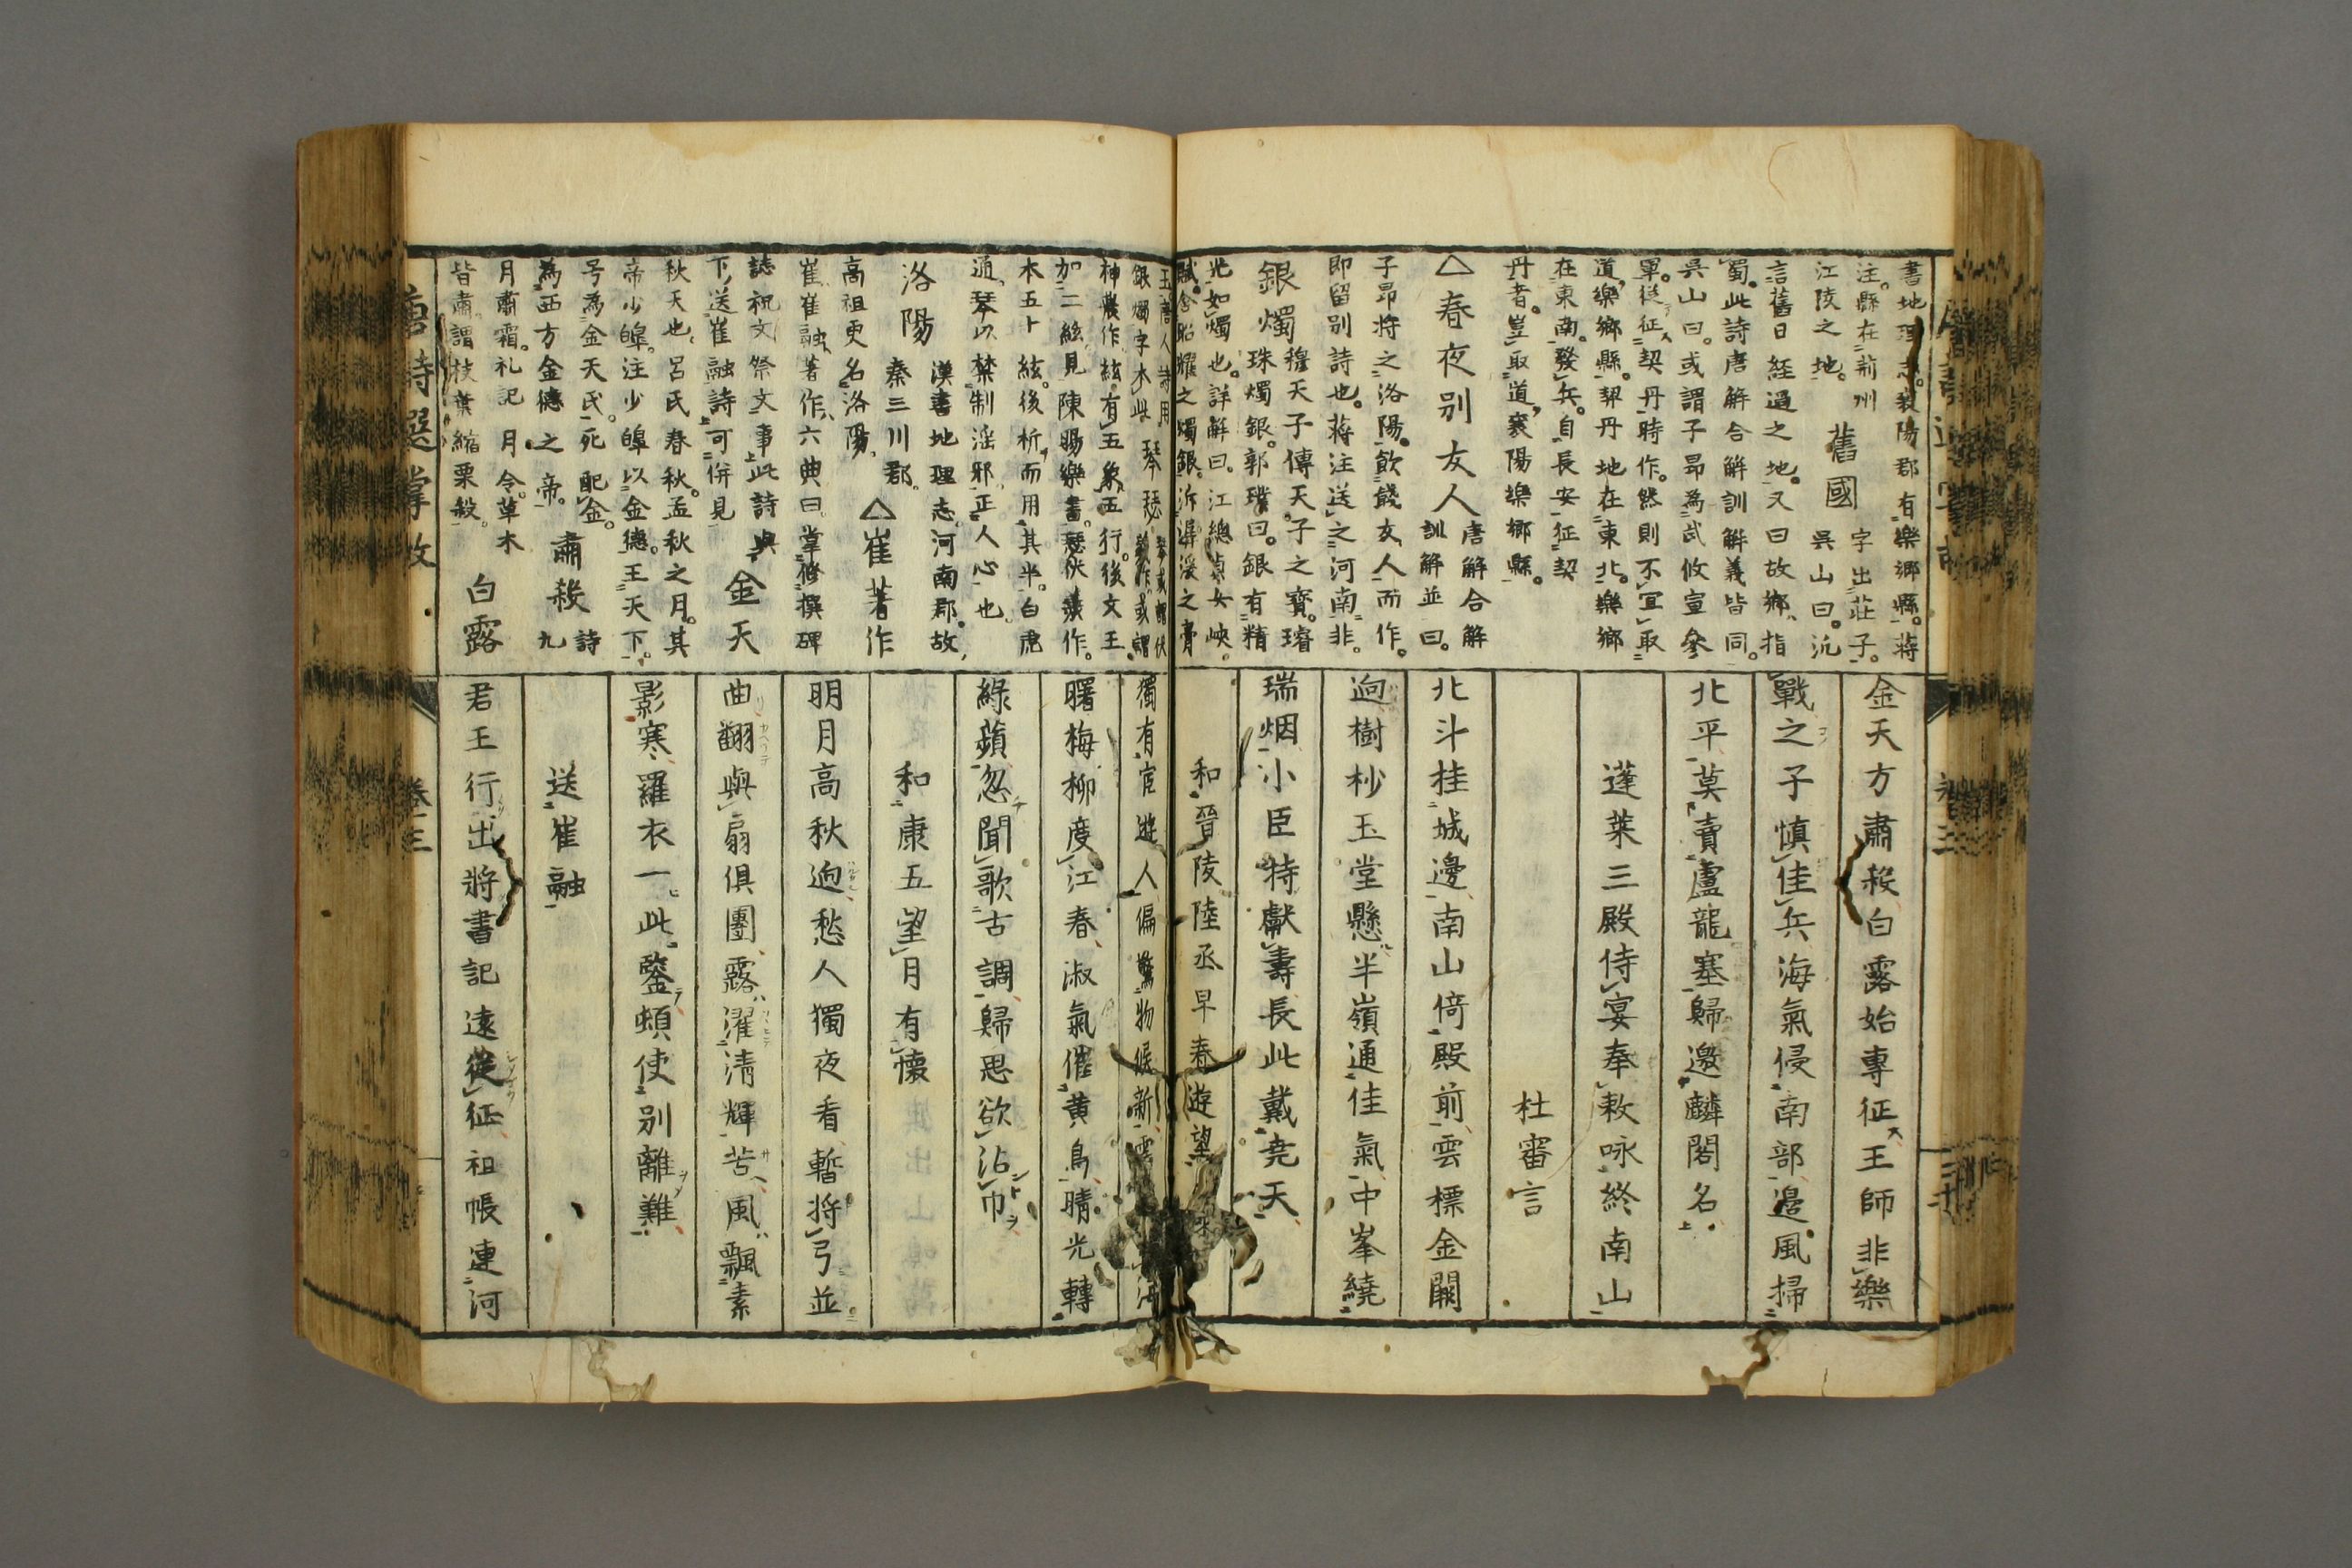 書地理志。襄陽郡有樂鄉縣。蔣
注。縣在荊州
江陵之地。
舊國
字出莊子。
吳山曰。沅
言舊日經過之地。又曰故鄉、指
蜀。此詩唐解合解訓解義皆同。
吳山曰。或謂子昂為武攸宜參
軍。從征契丹時作。然則不宜取
道樂鄉縣。契丹地在東北。樂鄉
在東南。發兵。自長安征契
丹者。豈取道襄陽樂鄉縣。
△春夜別友人
唐解合解
訓解並曰。
子昂將之洛陽。飲餞友人而作。
即留別詩也。蔣注送之河南非。
銀燭
穆天子傳天子之寶。璿
珠燭銀。郭璞曰。銀有精
光如燭也。詳解曰。江總貞女峽
賦。含照耀之燭銀。泝潺湲之膏
玉唐人蓋用
銀燭字本此
琴瑟
琴或謂伏
羲作。或謂
神農作絃有五象五行。後文王
加二絃見陳暘樂書。瑟伏羲作。
本五十絃。後析而用其半。白虎
通。琴以禁制淫邪正人心也
洛陽
漢書地理志。河南郡。故
秦三川郡。
高祖更名洛陽、
△崔著作
崔、崔融、著作、六典曰。掌修撰碑
誌祝文祭文事此詩與
下送崔融詩可併見
金天
秋天也。呂氏春秋。孟秋之月。其
帝少皥。注少皥以金德。王天下。
号為金天氏。死配金。
為西方金德之帝。
肅殺
詩
九
月肅霜。礼記月令。草木
皆肅。謂枝葉縮栗殺。
白露
金天方肅殺白露始專征王師非樂
戰之子慎佳兵海氣侵南部邊風掃
北平莫賣盧龍塞歸邀麟閣名
蓬萊三殿侍宴奉敕咏終南山
杜審言
北斗挂城邊南山倚殿前雲標金闕
迥樹杪玉堂懸半嶺通佳氣中峯繞
瑞烟小臣特獻壽長此戴堯天
和晉陵陸丞早春遊望
獨有宦遊人偏驚物候新雲
海
曙梅柳度江春淑氣催黃鳥晴光轉
綠蘋忽聞歌古調歸思欲沾巾
和康五望月有懷
明月高秋迥愁人獨夜看暫將弓並
曲翻與扇俱團露濯清輝苦風飄素
影寒羅衣一此鑒頓使別離難
送崔融
君王行出將書記遠從征祖帳連河
唐詩選掌故
卷三